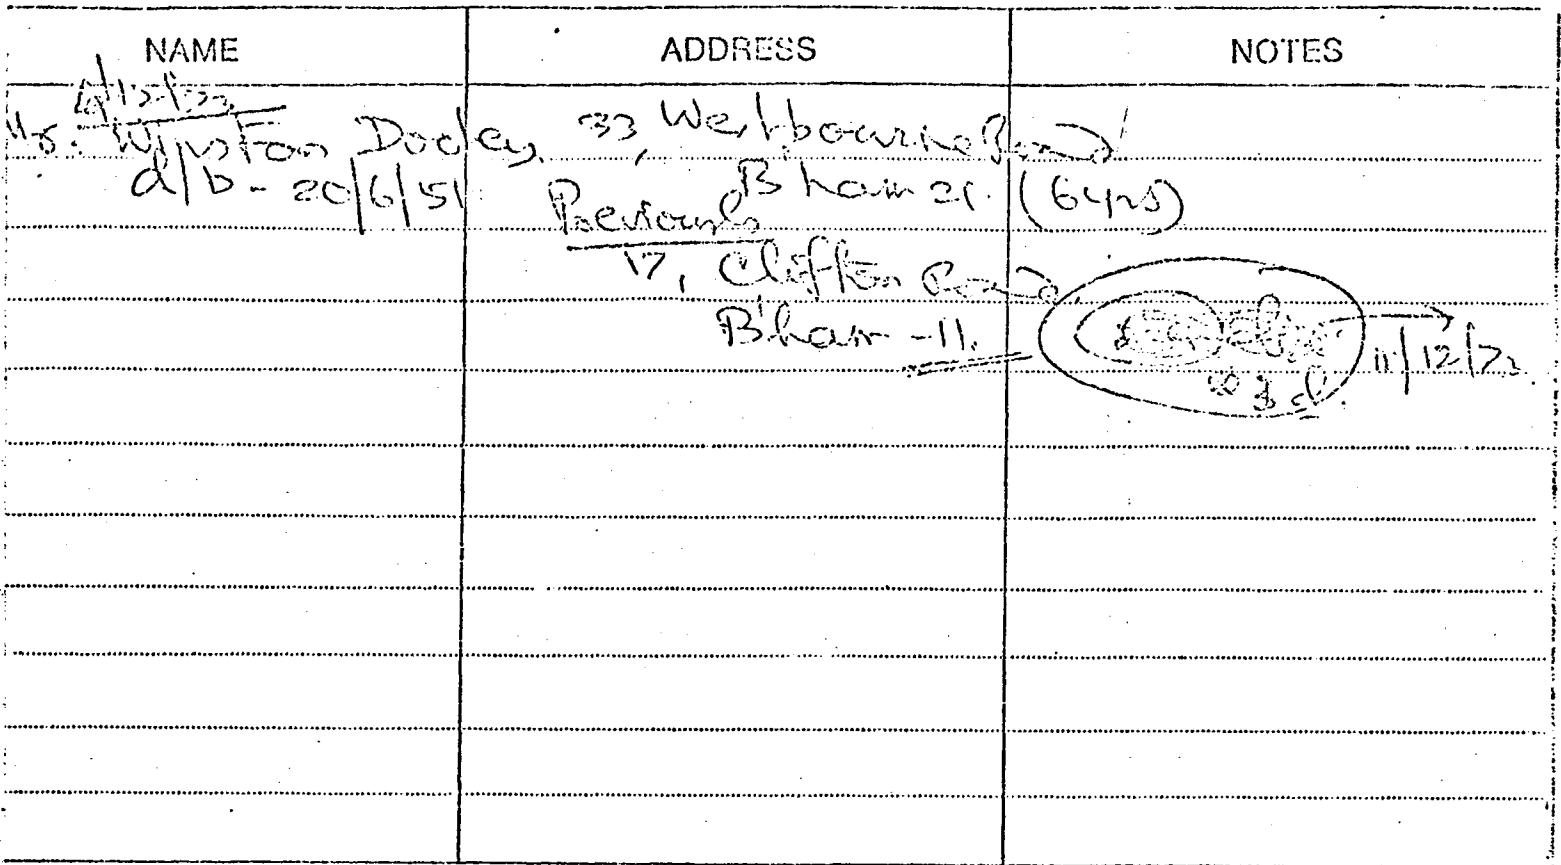 NAME ADDRESS NOTES
Winston Dooley, 33, Westbourne Road
d/b - 20/6/51 B'ham 21. (6yrs)
Previously
17, Clifton Road
B'ham - 11.
11/12/72